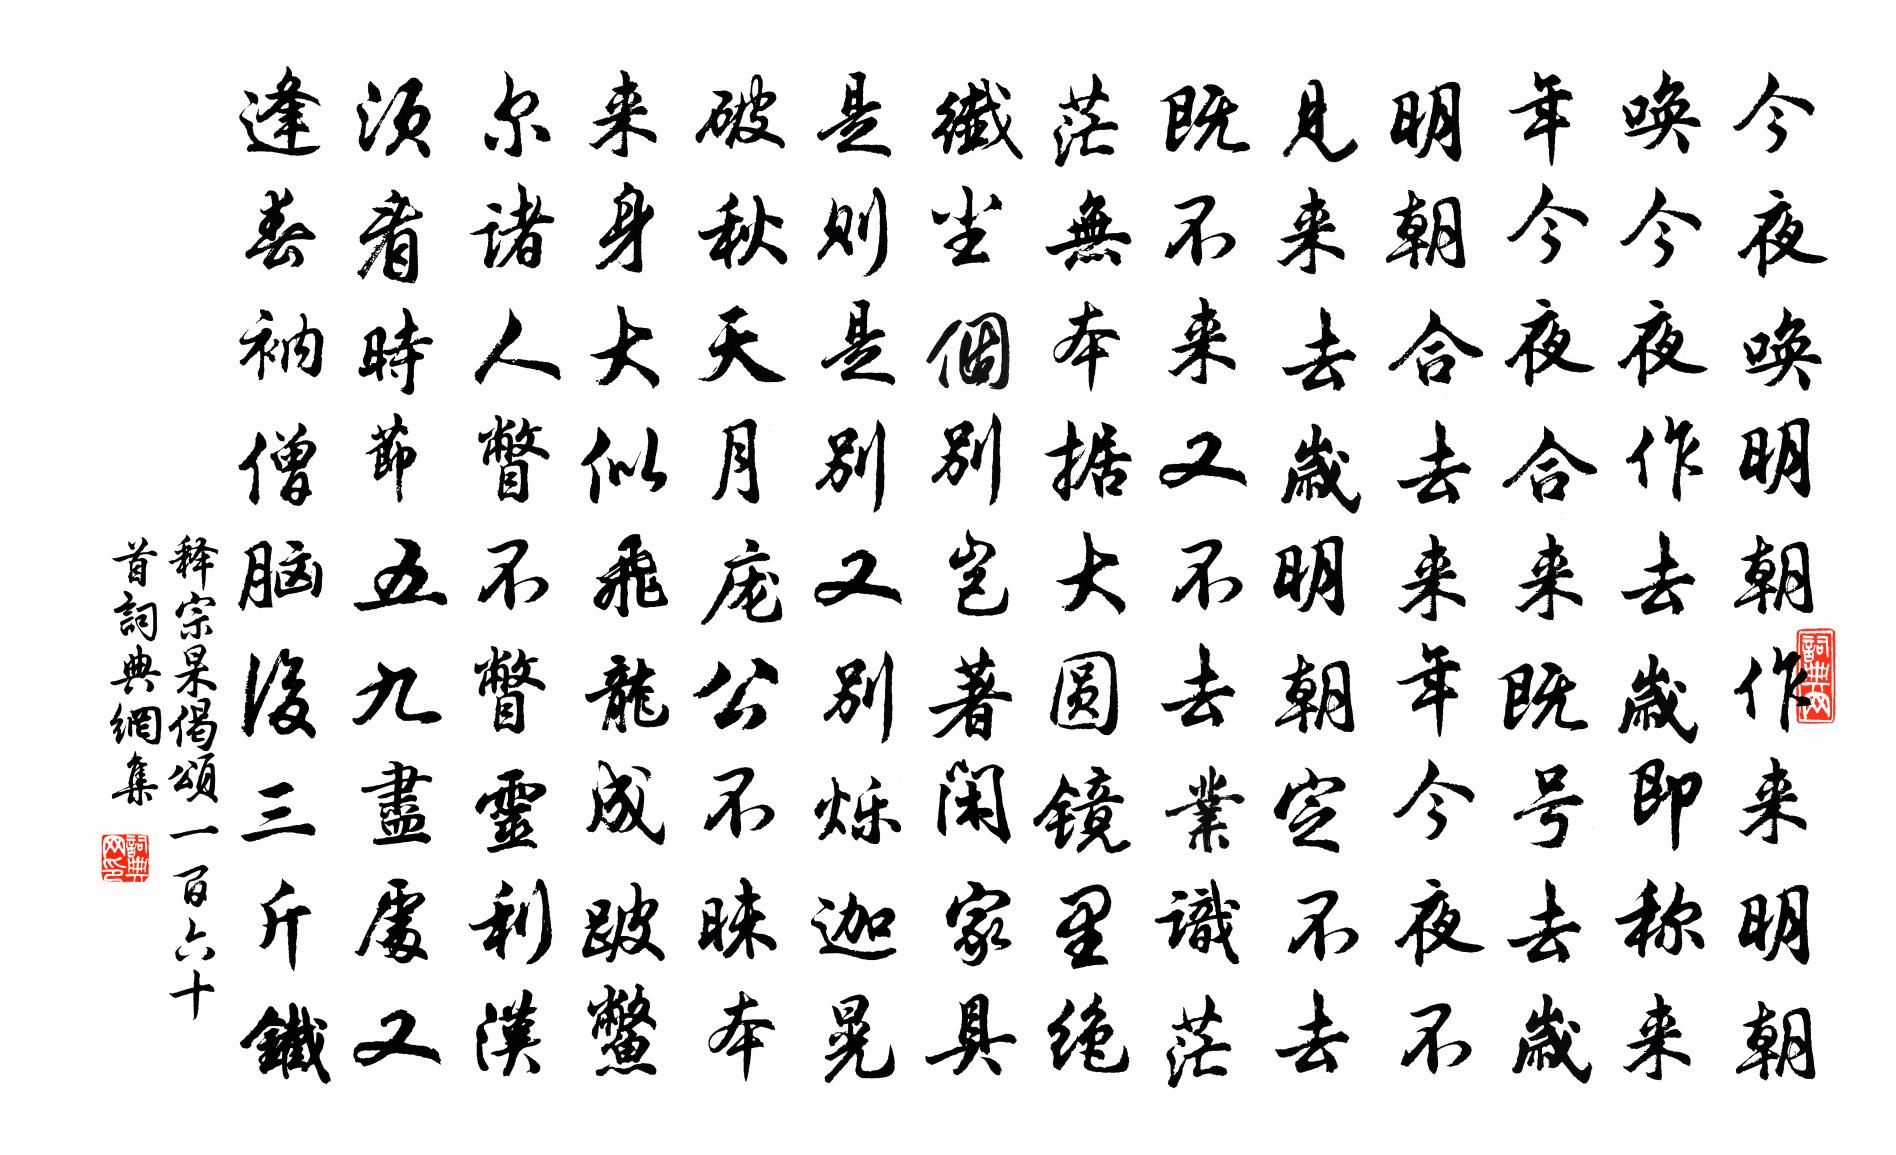 今夜唤明朝作来明朝
唤今夜作去歲即称来
年今夜合来既号去歲
明朝合去来年今夜不
見来去歲明朝定不去
既不来又不去業識茫
茫無本据大圆镜里绝
纖尘個别岂著闲家具
是则是别又别烁迦晃
破秋天月庞公不昧本
来身大似飛龍成跛鱉
尔诸人瞥不瞥靈利漢
须看時節五九盡處又
逢春衲僧脑後三斤鐵
释宗杲偈頌一百六十
首詞典網集
詞典网
詞典网印